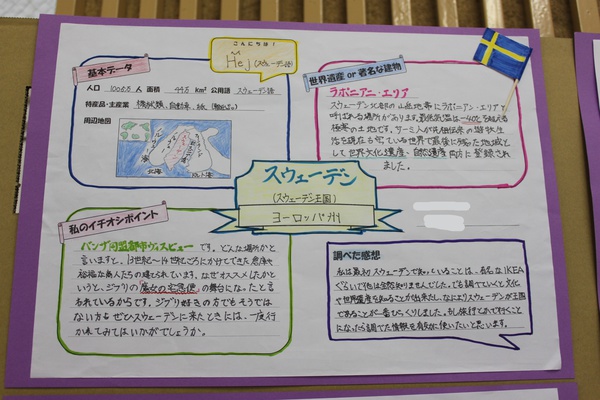 こんにちは!
Hej(スウェーデン語)
基本データ
人口 1008.5 人 面積 44.5 km² 公用語 スウェーデン語
特産品・主産業 機械類、自動車、紙、
周辺地図
北海
世界遺産 or 著名な建物
ラポニアン・エリア
スウェーデン北部の山岳地帯にラポニアン・エリアと
呼ばれる場所があります。最低気温は-40℃を超える
極寒の土地です。サーミ人が先祖伝来の遊牧生
活を現在も営んでいる世界で最後に残った地域と
して世界文化遺産、自然遺産両方に登録され
ました。
スウェーデン
(スウェーデン王国)
ヨーロッパ州
私のイチオシポイント
ハンザ同盟都市ヴィスビュー です。どんな場所かと
言いますと、13世紀~14世紀ごろにかけてできた
裕福な商人たちの建てられています。なぜオススメしたかと
いうと、ジブリの「魔女の宅急便」の舞台になったと言
われているからです。ジブリ好きの方もそうでは
ない方もぜひスウェーデンに来たときには、一度行
かれてみてはいかがでしょうか。
調べた感想
私は最初スウェーデンで知っていることは、有名なIKEA
ぐらいで他は全然知りませんでした。でも調べていくと文化
や世界遺産を知ることが出来たし、なによりスウェーデンが王国
であることが一番びっくりしました。もし旅行とかで行くことに
なったら調べた情報を有効に使いたいと思います。